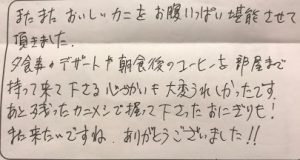 またまたおいしいカニをお腹いっぱい堪能させて
頂きました。
夕食事のデザートや朝食後のコーヒーを部屋まで
持って来て下さる心づかいも大変うれしかったです。
あと残ったカニメシで握って下さったおにぎりも!
また来たいですね。ありがとうございました!!